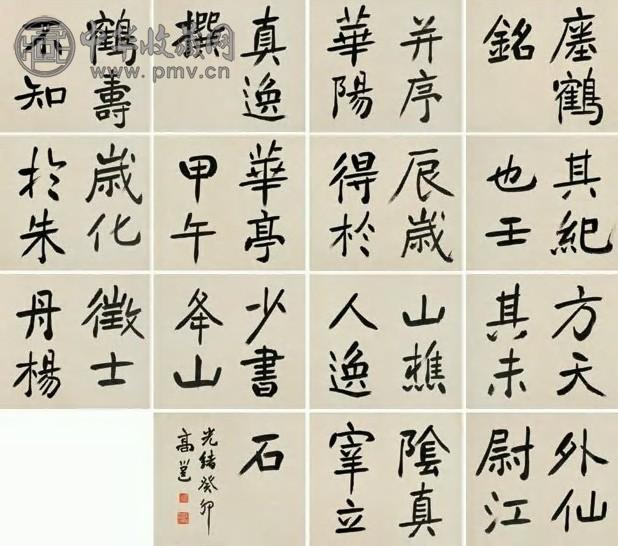 瘞鶴
銘
并序
華陽
真逸
撰
鶴壽
不知
其紀
也壬
辰歲
得於
華亭
甲午
歲化
於朱
方天
其未
山樵
人逸
少書
夅山
徵士
丹楊
外仙
尉江
陰真
宰立
石
光緒癸卯
高邕
中华收藏网
www.pmv.cn